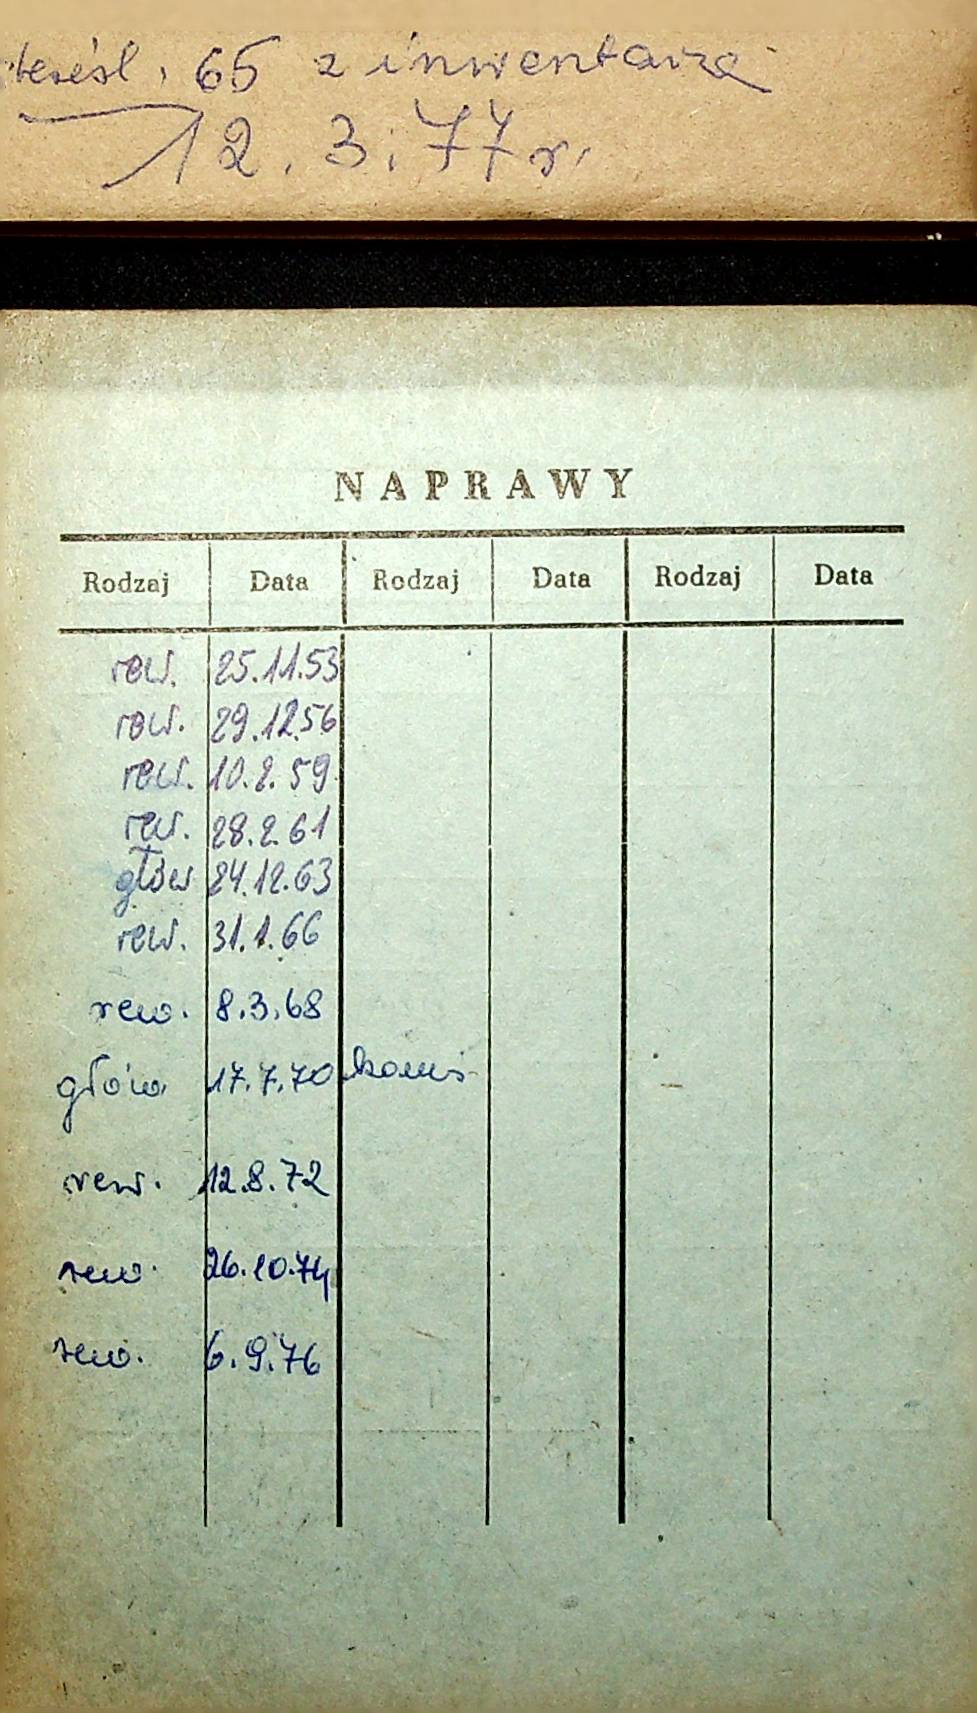 65 z inwentarza
12.3.77r.
NAPRAWY
Rodzaj Data Rodzaj Data Rodzaj Data
rew. 25.11.53
rew. 29.12.56
rew. 10.2.59
rew. 28.2.61
głów 24.12.63
rew. 31.1.66
rew. 8.3.68
głów. 17.7.70
rew. 12.8.72
rew. 26.10.74
rew. 6.9.76